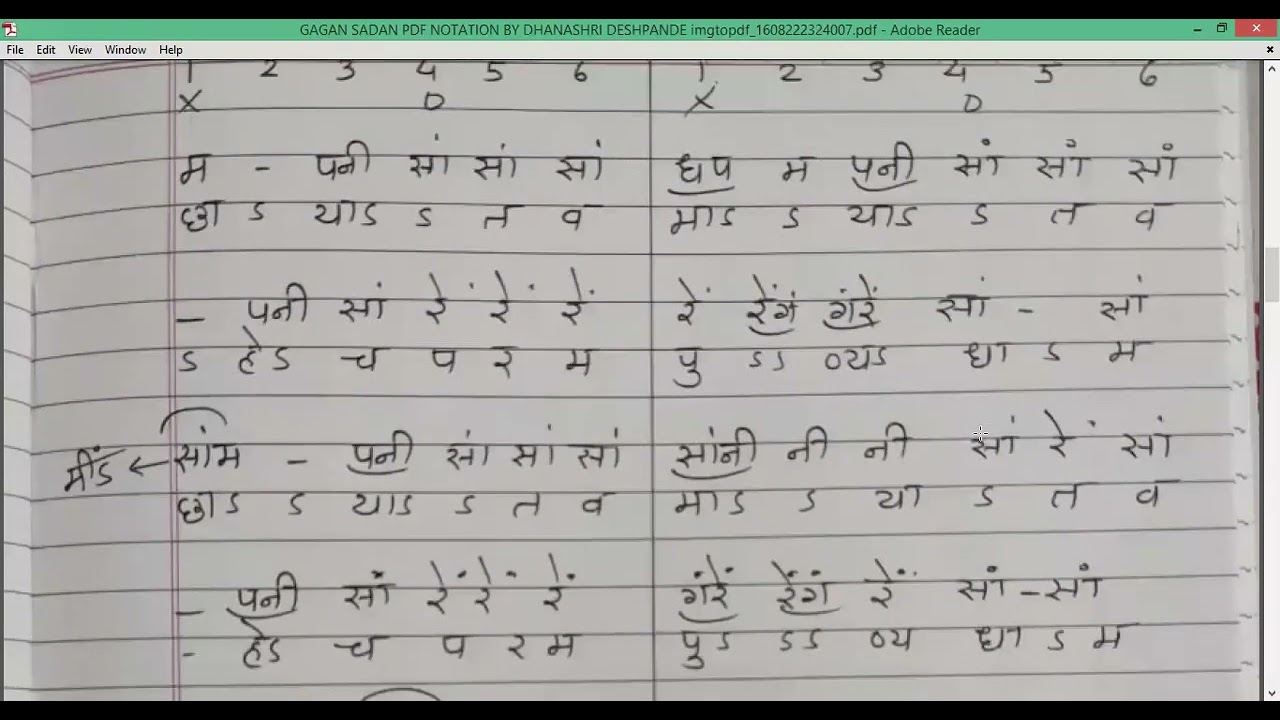 GAGAN SADAN PDF NOTATION BY DHANASHRI DESHPANDE imgtopdf_1608222324007.pdf - Adobe Reader
File Edit View Window Help
1 2 3 4 5 6 1 2 3 4 5 6
X 0 X 0
म - पनी सां सां सां धप म पनी सां सां सां
छा ऽ याऽ ऽ त व माऽ ऽ याऽ ऽ त व
- पनी सां रें रें रें रें रेंगं गंरें सां - सां
ऽ हेऽ च प र म पु ऽऽ ण्यऽ धा ऽ म
मींड ← सांम - पनी सां सां सां सांनी नी नी सां रें सां
छाऽ ऽ याऽ ऽ त व माऽ ऽ या ऽ त व
- पनी सां रें रें रें गंरें रेंगं रें सां - सां
- हेऽ च प र म पुऽ ऽऽ ण्य धा ऽ म